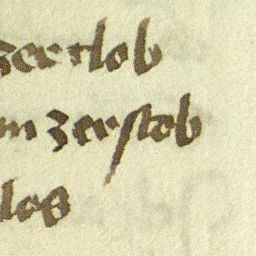 zerclob
m zerstob
los